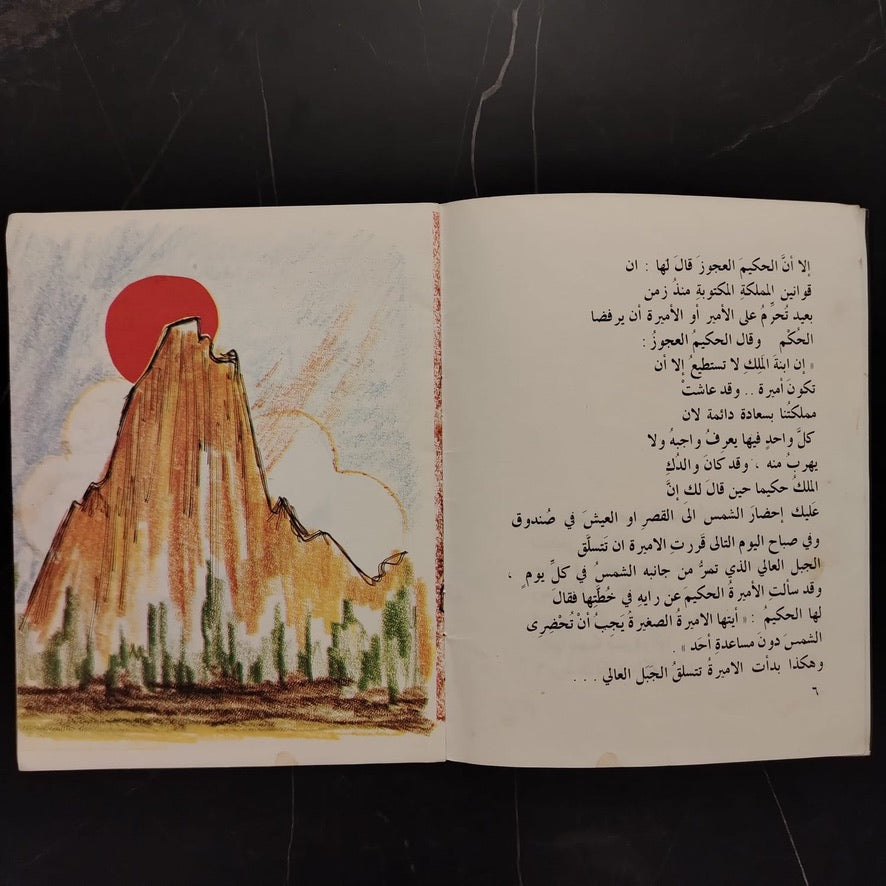 إلا أنَّ الحكيمَ العجوزَ قالَ لها : ان
قوانين المملكةِ المكتوبةِ منذُ زمن
بعيد تُحرِّمُ على الأمير أو الأميرة أن يرفضا
الحُكْم وقال الحكيمُ العجوزُ :
« إن ابنةَ المَلِكِ لا تستطيعُ إلا أن
تكونَ أميرة .. وقد عاشتْ
مملكتُنا بسعادة دائمة لان
كلَّ واحدٍ فيها يعرِفُ واجبهُ ولا
يهربُ منه ، وقد كانَ والدُكِ
الملكُ حكيما حين قالَ لكِ إنَّ
عَليك إحضارَ الشمس الى القصرِ او العيشَ في صُندوق
وفي صباح اليوم التالى قررتِ الاميرة ان تَتسلَّق
الجبل العالي الذي تمرُّ من جانبه الشمسُ في كلِّ يومٍ ،
وقد سألتِ الأميرةُ الحكيمَ عن رايهِ في خُطَّتِها فقالَ
لها الحكيمُ : « أيتها الاميرةُ الصغيرةُ يَجِبُ أنْ تُحْضِرِى
الشمسَ دونَ مساعدةِ أحَد » .
وهكذا بدأت الاميرةُ تتسلقُ الجَبَل العالي . . .
٦